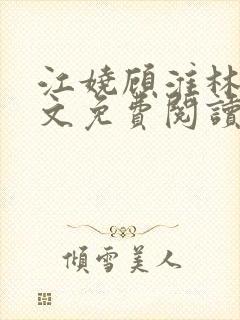 江嬈顾淮林
文免費閱讀
傾雪美人